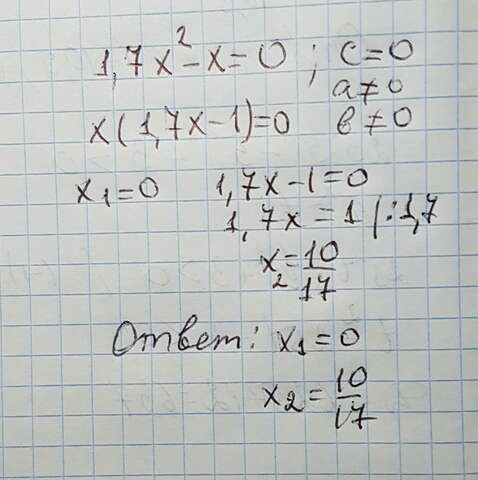 1,7x² - x = 0 ; c = 0
a ≠ 0
x(1,7x - 1) = 0   b ≠ 0
x₁ = 0   1,7x - 1 = 0
1,7x = 1 | : 1,7
x₂ = 10/17
Ответ: x₁ = 0
x₂ = 10/17